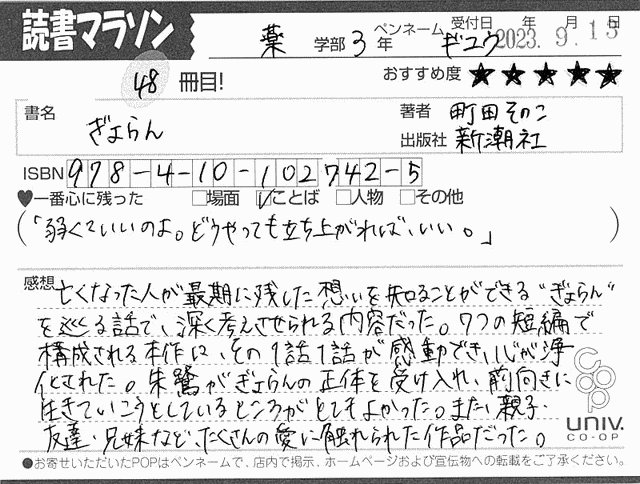 読書マラソン
薬 学部 3 年 ペンネーム ギユウ 受付日 年 月 日
2023. 9. 15
48 冊目!
おすすめ度 ★★★★★
書名 ぎょらん
著者 町田そのこ
出版社 新潮社
ISBN 978-4-10-102742-5
♥一番心に残った □場面 ☑ことば □人物 □その他
(「弱くていいのよ。どうやっても立ち上がればいい。」)
感想 亡くなった人が最期に残した想いを知ることができる"ぎょらん"
を巡る話で、深く考えさせられる内容だった。7つの短編で
構成される本作は、その1話1話が感動でき、心が浄
化された。朱鷺がぎょらんの正体を受け入れ、前向きに
生きていこうとしているところがとてもよかった。また、親子、
友達、兄妹など、たくさんの愛に触れられた作品だった。
coop
UNIV.
CO-OP
●お寄せいただいたPOPはペンネームで、店内で掲示、ホームページおよび宣伝物への転載をご了承ください。